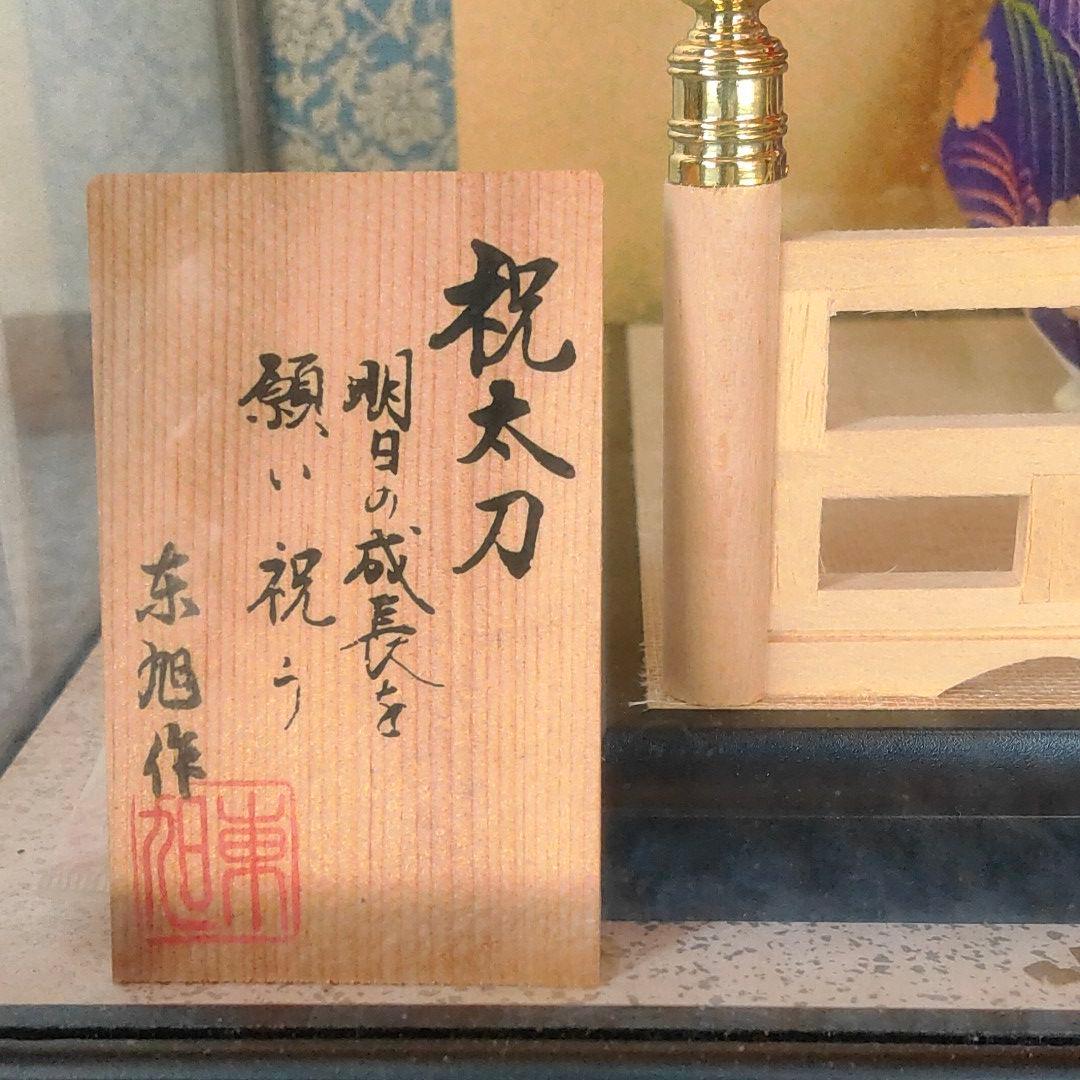 祝太刀
明日の成長を
願い祝う
东旭作
東旭